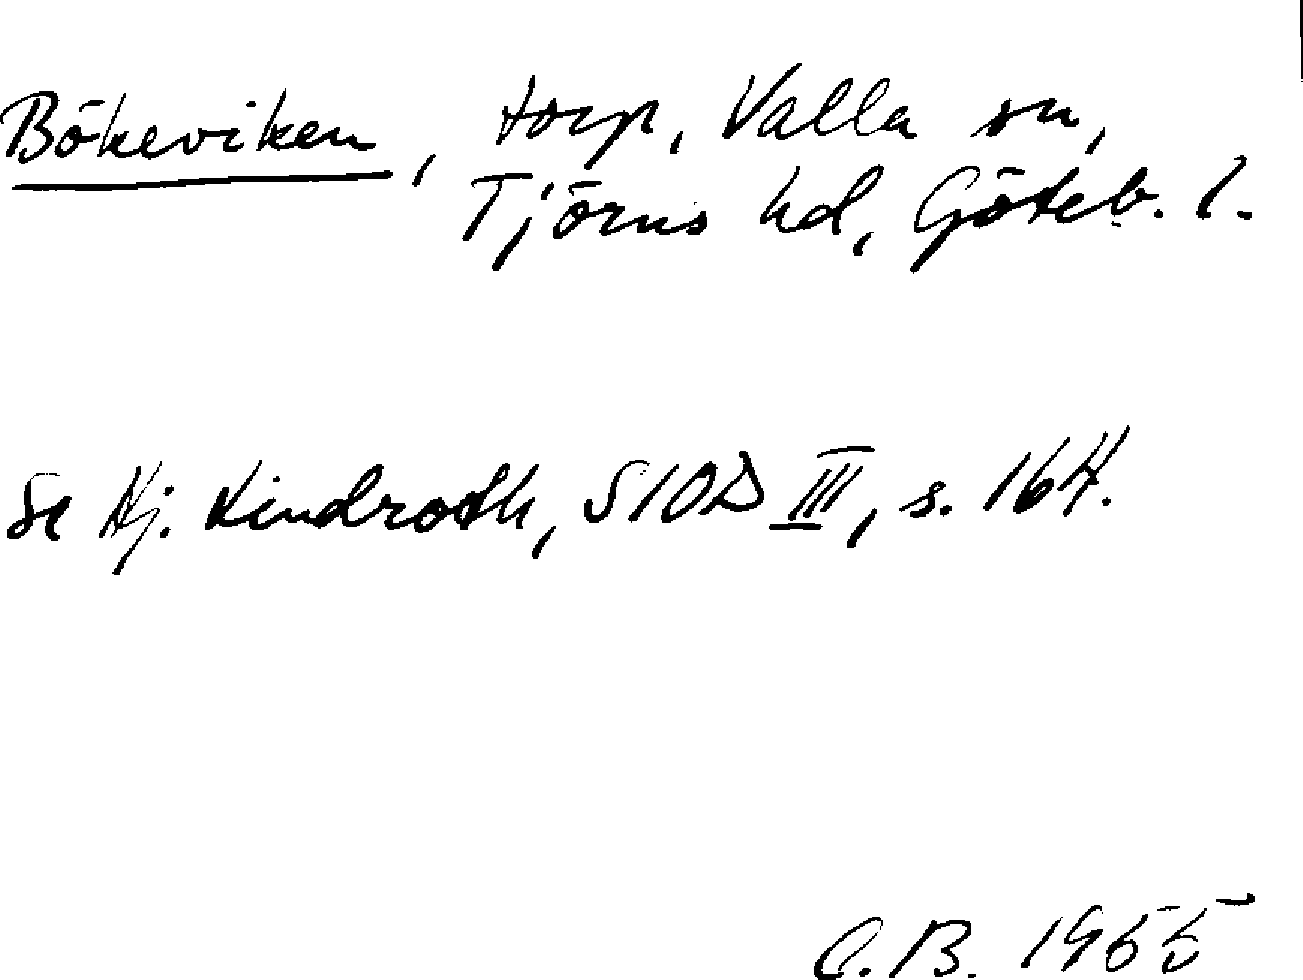 Bökeviken, torp, Valla sn,
Tjörns hd, Göteb. l.
Se Hj. Lindroth, SIOD III, s. 164.
C.B. 1955